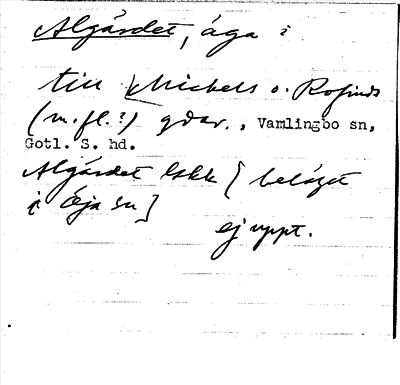 Algårdet, äga i
till Michels o. Rofinds
(m.fl.?) gdar., Vamlingbo sn,
Gotl. S. hd.
Algårdet lskk [beläget
i Öja sn]
ej uppt.